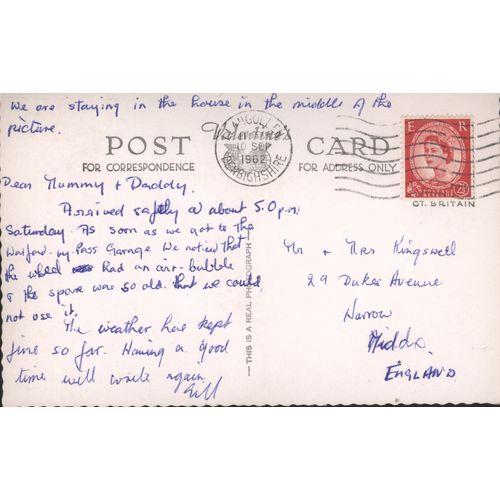 We are staying in the house in the middle of the
picture.
POST Valentine's CARD
FOR CORRESPONDENCE FOR ADDRESS ONLY
LLANGOLLEN
10 SEP
1962
DENBIGHSHIRE
E R
2½
GT. BRITAIN
Dear Mummy + Daddy,
Arrived safely at about 5.0 p.m.
Saturday. As soon as we got to the
Watford-by-Pass Garage We noticed that
the wheel had an air-bubble
& the spare was so old that we could
not use it.
The weather has kept
fine so far. Having a good
time will write again.
Gill
— THIS IS A REAL PHOTOGRAPH —
Mr + Mrs Kingswell
29 Dukes Avenue
Harrow
Middx.
ENGLAND